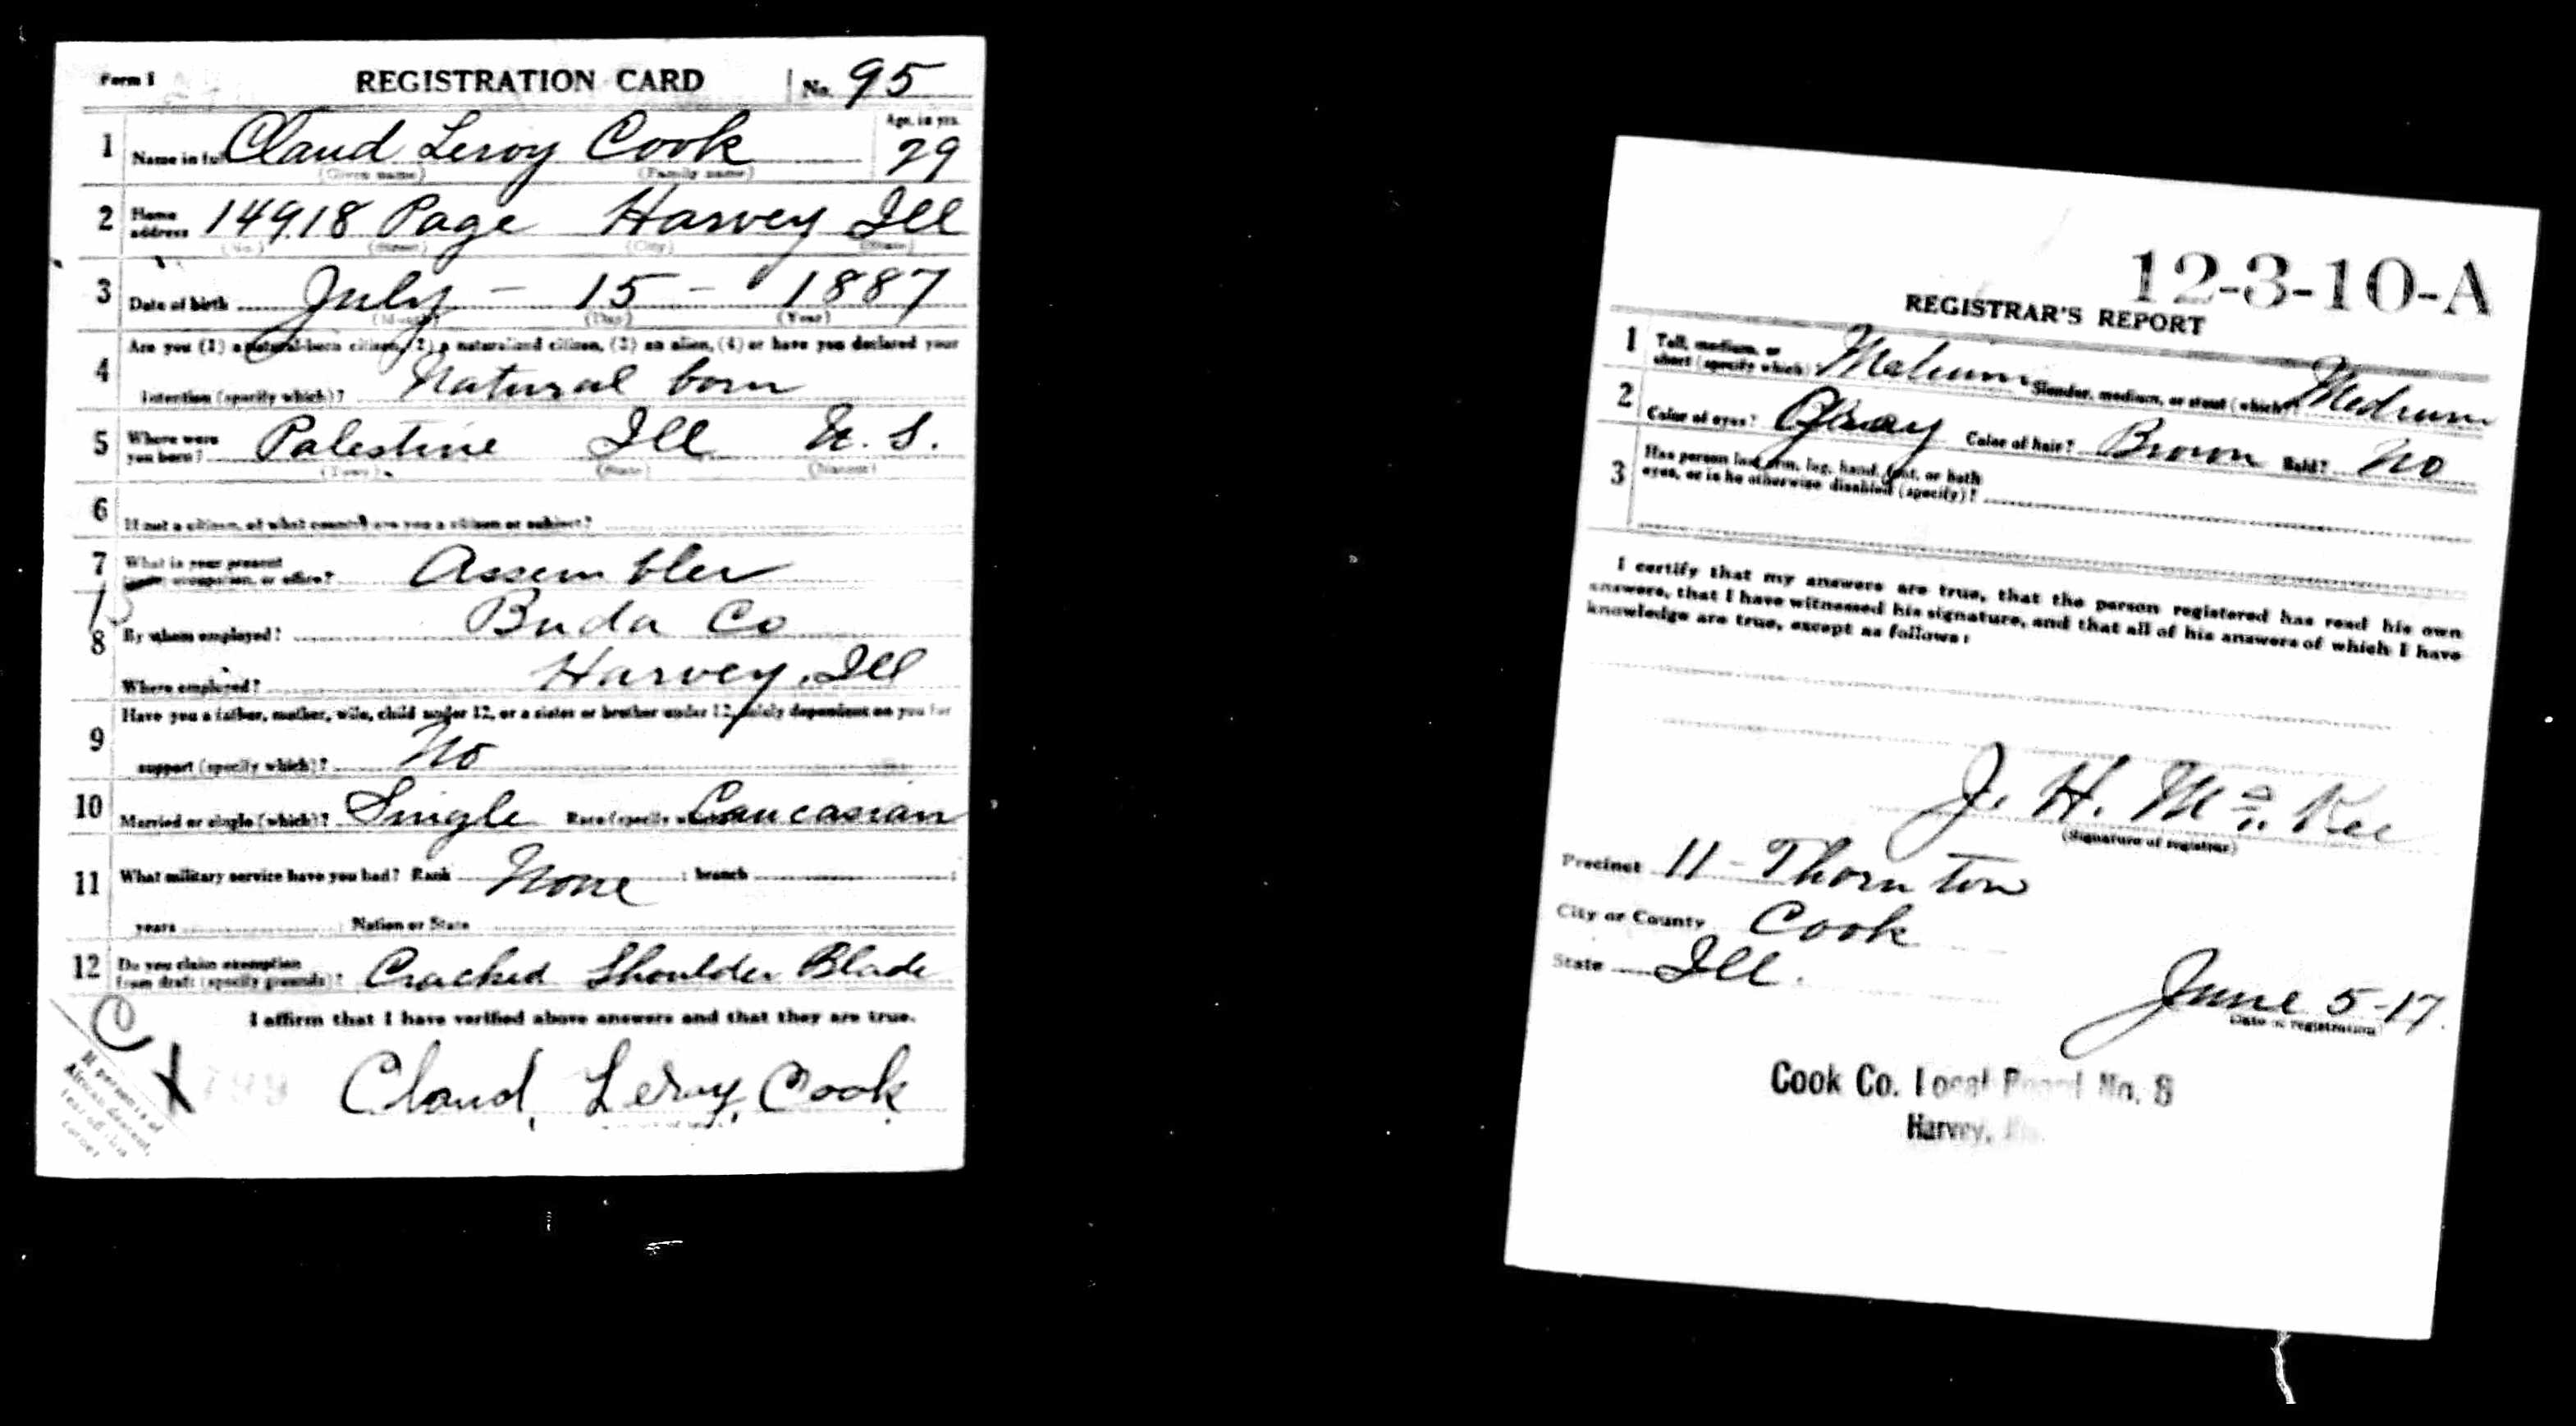 Form 1 REGISTRATION CARD No. 95
1 Name in full Claud Leroy Cook Age, in yrs. 29
(Given name) (Family name)
2 Home address 14918 Page Harvey Ill
(No.) (Street) (City) (State)
3 Date of birth July - 15 - 1887
(Month) (Day) (Year)
4 Are you (1) a natural-born citizen, (2) a naturalized citizen, (3) an alien, (4) or have you declared your
intention (specify which)? Natural born
5 Where were you born? Palestine Ill U. S.
(Town) (State) (Nation)
6 If not a citizen, of what country are you a citizen or subject?
7 What is your present trade, occupation, or office? Assembler
8 By whom employed? Buda Co
Where employed? Harvey, Ill
9 Have you a father, mother, wife, child under 12, or a sister or brother under 12, solely dependent on you for
support (specify which)? No
10 Married or single (which)? Single Race (specify which)? Caucasian
11 What military service have you had? Rank None ; branch ;
years ; Nation or State
12 Do you claim exemption from draft (specify grounds)? Cracked Shoulder Blade
I affirm that I have verified above answers and that they are true.
Claud, Leroy, Cook
If person is of
African descent,
tear off this
corner
12-3-10-A
REGISTRAR'S REPORT
1 Tall, medium, or short (specify which)? Medium Slender, medium, or stout (which)? Medium
2 Color of eyes? Gray Color of hair? Brown Bald? No
3 Has person lost arm, leg, hand, foot, or both
eyes, or is he otherwise disabled (specify)?
I certify that my answers are true, that the person registered has read his own
answers, that I have witnessed his signature, and that all of his answers of which I have
knowledge are true, except as follows:
J. H. McKee
(Signature of registrar)
Precinct 11 - Thornton
City or County Cook
State Ill.
June 5-17
Date of registration
Cook Co. Local Board No. 8
Harvey,